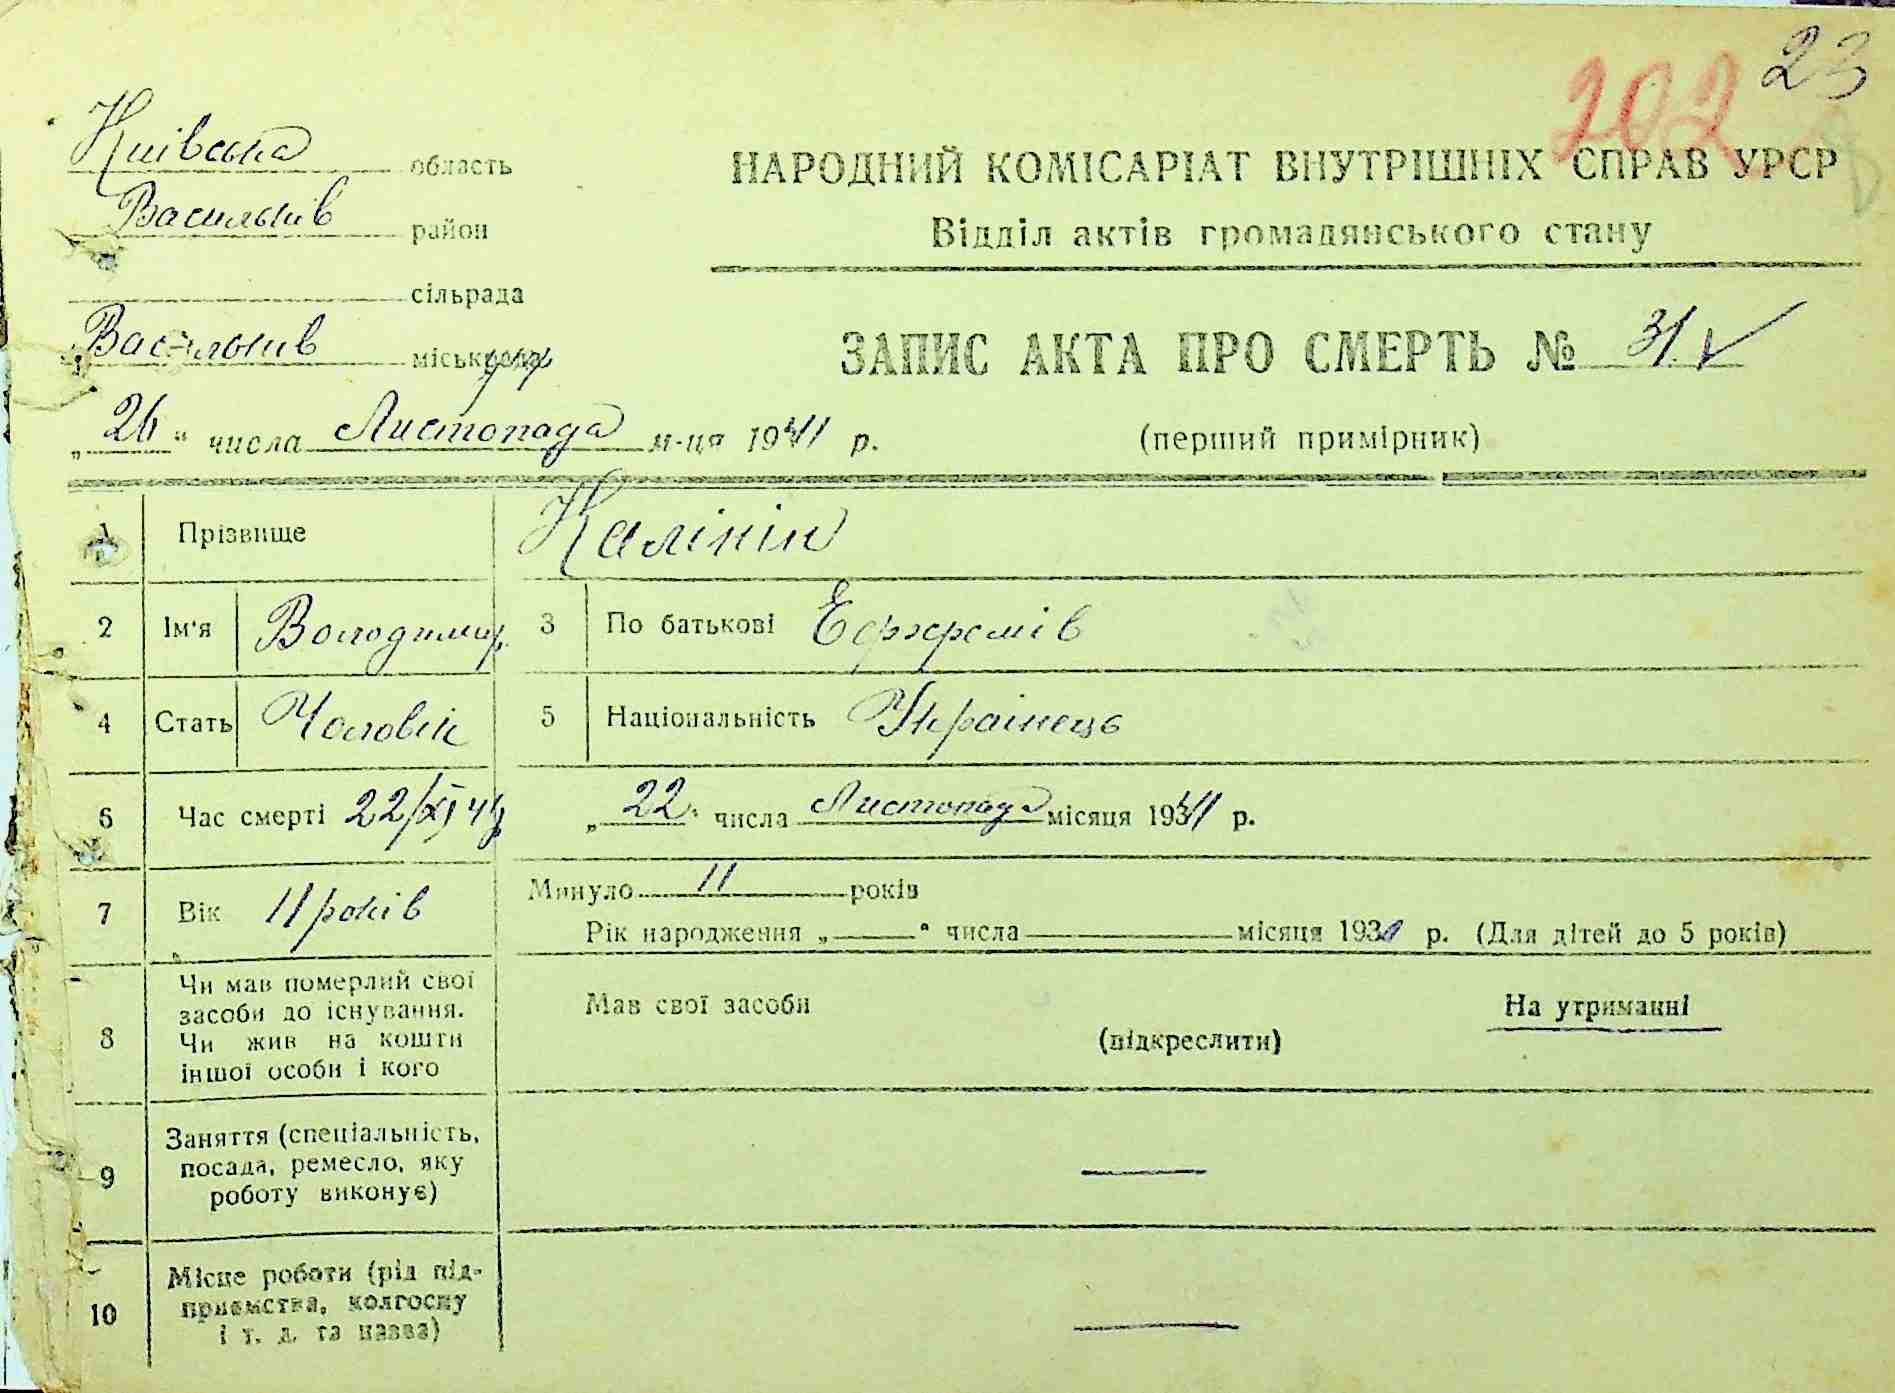 23
202
Київська область
НАРОДНИЙ КОМІСАРІАТ ВНУТРІШНІХ СПРАВ УРСР
Васильків район
Відділ актів громадянського стану
сільрада
Васильків міськ
ЗАПИС АКТА ПРО СМЕРТЬ № 31
„26“ числа Листопада м-ця 1941 р.
(перший примірник)
1 Прізвище Калінін
2 Ім'я Володимир 3 По батькові Ефремів
4 Стать Чоловік 5 Національність Українець
6 Час смерті 22/XI 41 „22“ числа Листопада місяця 1941 р.
7 Вік 11 років Минуло 11 років
Рік народження „ “ числа місяця 193 р. (Для дітей до 5 років)
8 Чи мав померлий свої засоби до існування. Чи жив на кошти іншої особи і кого
Мав свої засоби (підкреслити) На утриманні
9 Заняття (спеціальність, посада, ремесло, яку роботу виконує) —
10 Місце роботи (рід під-приємства, колгоспу і т. д. та назва) —